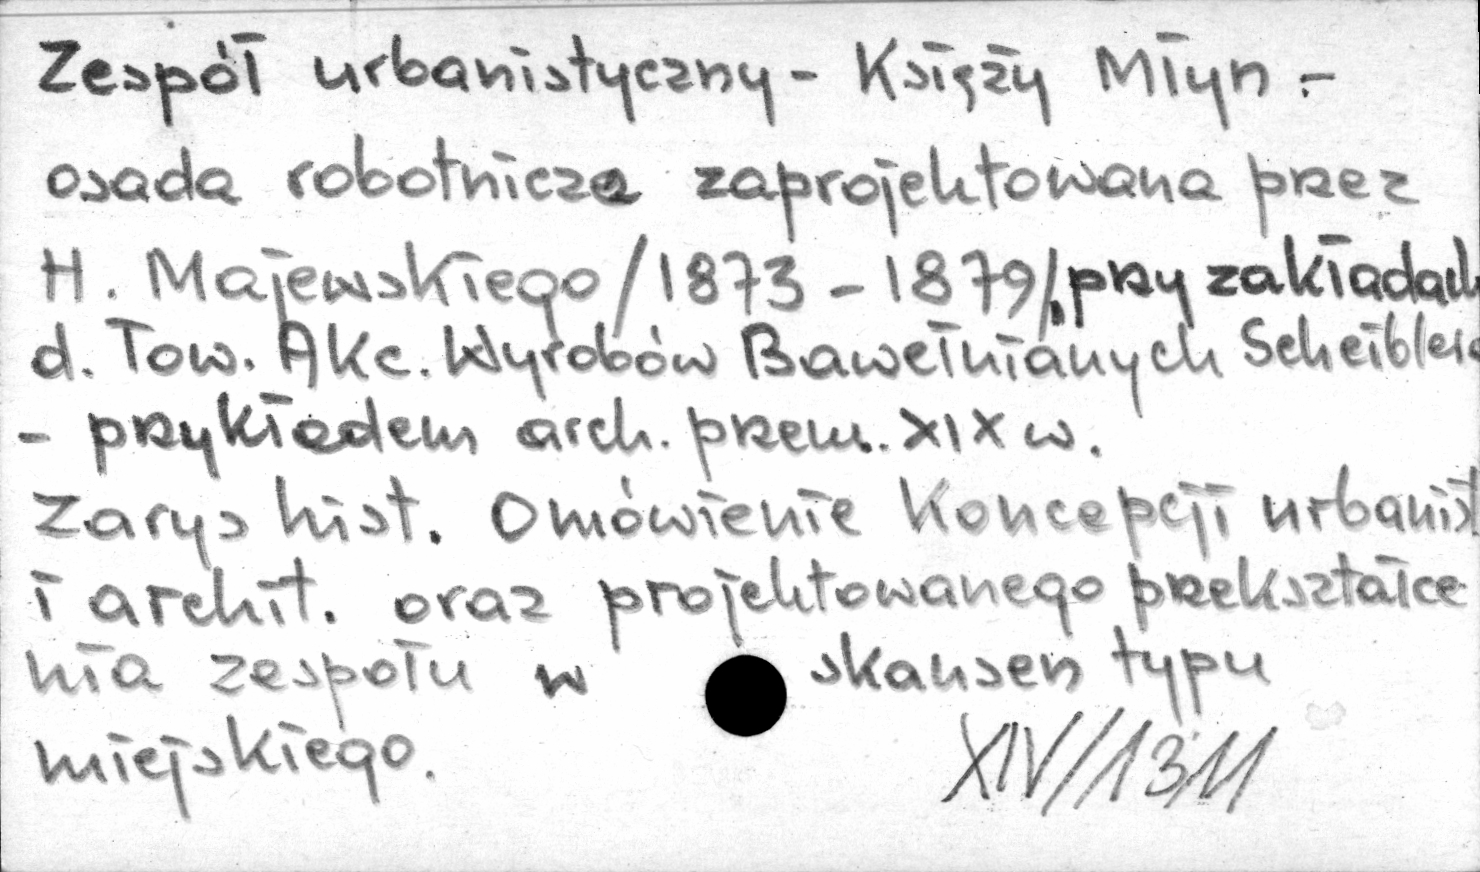 Zespół urbanistyczny - Księży Młyn -
osada robotnicza zaprojektowana przez
H. Majewskiego /1873 - 1879/, przy zakładach
d. Tow. Akc. Wyrobów Bawełnianych Scheiblera
- przykładem arch. przem. XIX w.
Zarys hist. Omówienie koncepcji urbanist
i archit. oraz projektowanego przekształce
nia zespołu w skansen typu
miejskiego.
XIV//1311